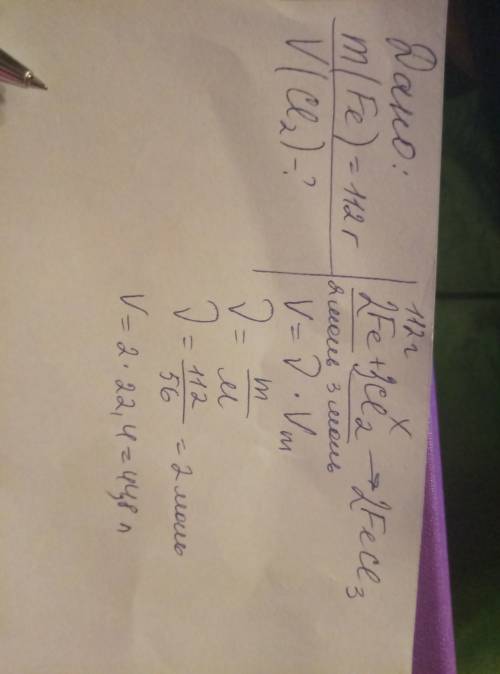 Дано:
m(Fe) = 112 г
V(Cl₂) - ?
112 г x
2Fe + 3Cl₂ → 2FeCl₃
2 моль 3 моль
V = ν · Vm
ν = m/M
ν = 112/56 = 2 моль
V = 2 · 22,4 = 44,8 л